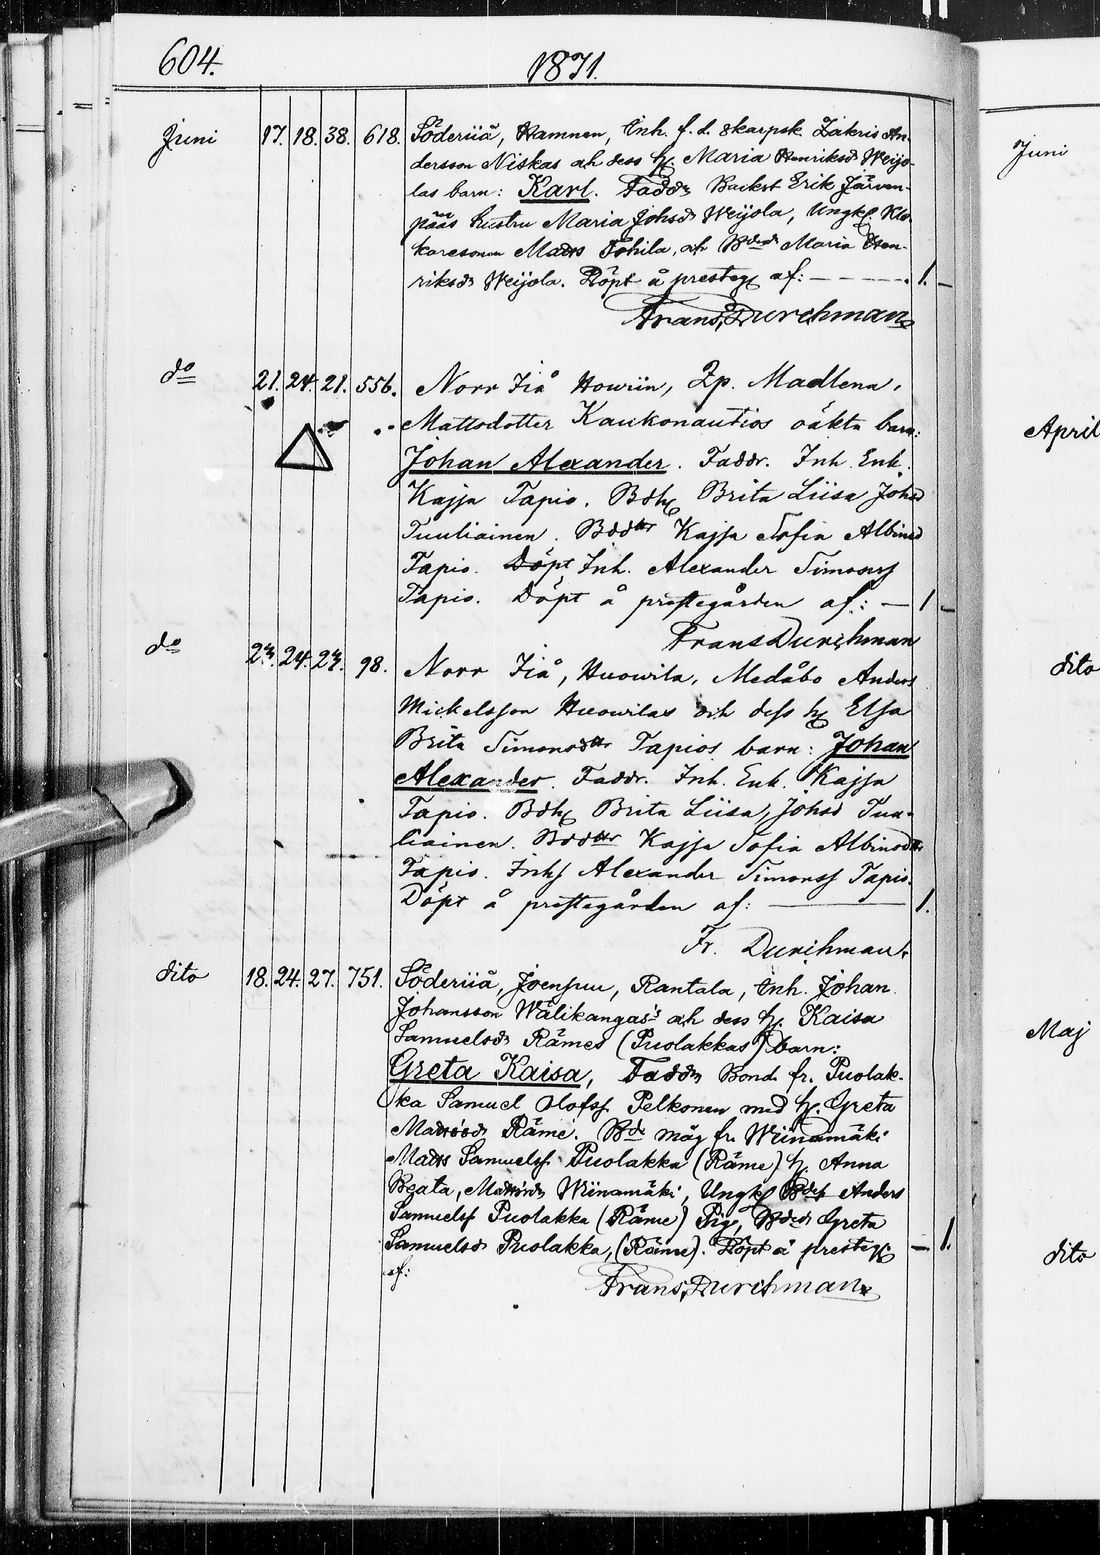 604.
1871.
Juni 17. 18. 38. 618. Söderiiå, Hamnen, Inh. f. d. skarpsk Zakris An-
dersson Niskas ah dess h. Maria Henriksdr Weijo-
las barn: Karl. Faddr Backst Erik Järven-
pääs hustru Maria Johsdr Weijola, Ungk. Klo-
karesonen Matts Tohila, ah Maria Hen-
riksdr Weijola. Döpt å presteg af: — 1. —
Frans Durchman
do 21. 24. 21. 556. Norr Iiå Howiin, Zp. Madlena,
Mattsdotter Kaukonautios oäkta barn:
Johan Alexander. Faddr. Inh. Enk.
Kajsa Tapio. Bdh Brita Liisa Johsd
Tuuliainen. Bddttr Kajsa Sofia Albinsd
Tapio. Döpt Inh. Alexander Simonss
Tapio. Döpt å prestegården af: — 1 —
Frans Durchman
do 23. 24. 24. 98. Norr Iiå, Huowila, Medåbo Anders
Mickelsson Huowilas och dess h Elsa
Brita Simonsdttr Tapios barn: Johan
Alexander. Faddr. Inh. Enk. Kajsa
Tapio. Bdh Brita Liisa, Johsd Tuu-
liainen. Bddttr Kajsa Sofia Albinsdttr
Tapio. Inhs Alexander Simonss Tapio.
Döpt å prestegården af: — 1.
Fr. Durchman.
dito 18. 24. 27. 751. Söderiiå, Joensuu, Rantala, Inh. Johan
Johansson Wälikangas's ah dess h. Kaisa
Samuelsdr Rämes (Puolakkas) barn:
Greta Kaisa, Faddr Bond. fr. Puolak-
ka Samuel Olofss. Pelkonen med h. Greta
Mattsdr Räme. Bde måg fr. Wiinamäki
Matts Samuelss. Puolakka (Räme) h. Anna
Beata, Mattsdr Wiinamäki, Ungk Anders
Samuelss Puolakka (Räme) Pig. Greta
Samuelsdr Puolakka, (Räme). Döpt å presteg — 1.
af:
Frans Durchman
Juni
April
dito
Maj
dito